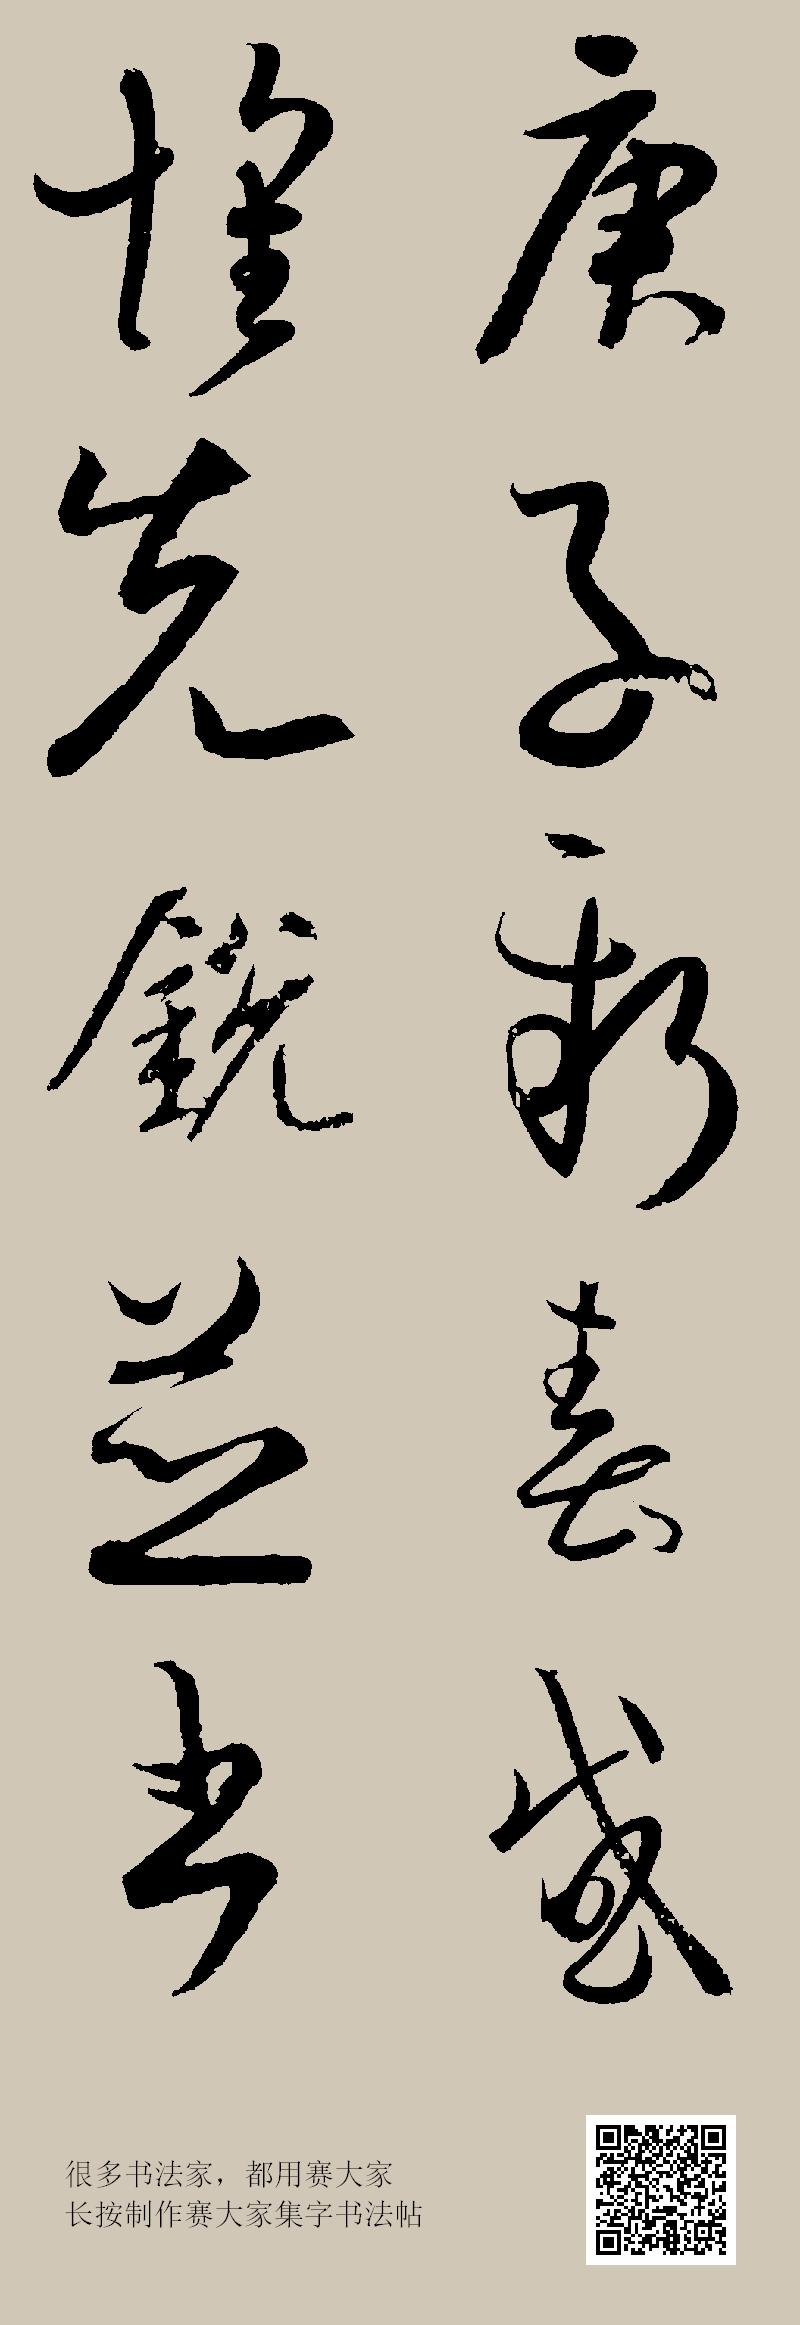 庚子新春感
怀先锐芝书
很多书法家，都用赛大家
长按制作赛大家集字书法帖